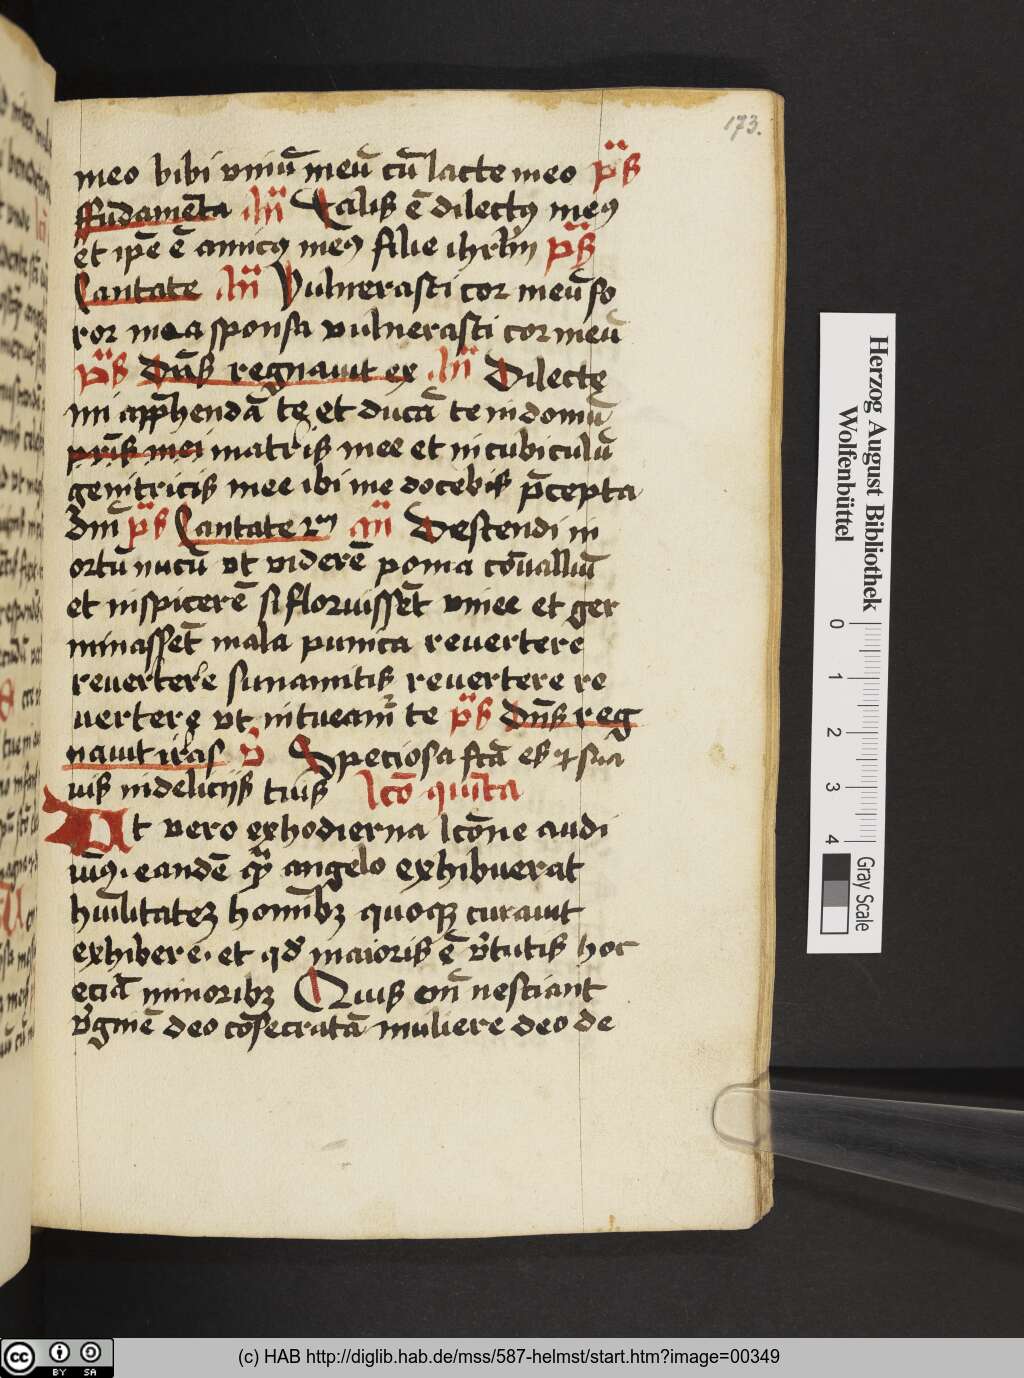 173.
meo bibi vinū meū cū lacte meo p̄s
ffūdamēta an̄ Talis ē dilectꝯ meꝯ
et ip̄e ē amicꝯ meꝯ filie ihrl̄m p̄s
Cantate an̄ Vulnerasti cor meū so
ror mea sponsa vulnerasti cor meū
p̄s Dn̄s regnauit ex an̄ Dilecte
mi app̄hendā te et ducā te in domū
pr̄is mei matris mee et in cubiculū
genitricis mee ibi me docebis p̄cepta
dn̄i p̄s Cantate 2m an̄ Descendi in
ortū nucū vt viderē poma cōualliū
et inspicerē si floruissēt vinee et ger
minassēt mala punica reuertere
reuertere sunamitis reuertere re
uertere vt intueamr̄ te p̄s Dn̄s reg
nauit iras v̄ Speciosa fc̄a es et sua
uis in delicijs tuis lc̄o quīta
Ut vero ex hodierna lc̄one audi
uimꝯ. eandē qm̄ angelo exhibuerat
hūilitateꝫ hominibꝫ quoqꝫ curauit
exhibere. et qd̄ maioris ē v̄tutis hoc
eciā minoribꝫ Quis enī nesciant
v̄ginē deo cōsecratā muliere deo de
Herzog August Bibliothek
Wolfenbüttel
0 1 2 3 4
Gray Scale
cc BY SA
(c) HAB http://diglib.hab.de/mss/587-helmst/start.htm?image=00349